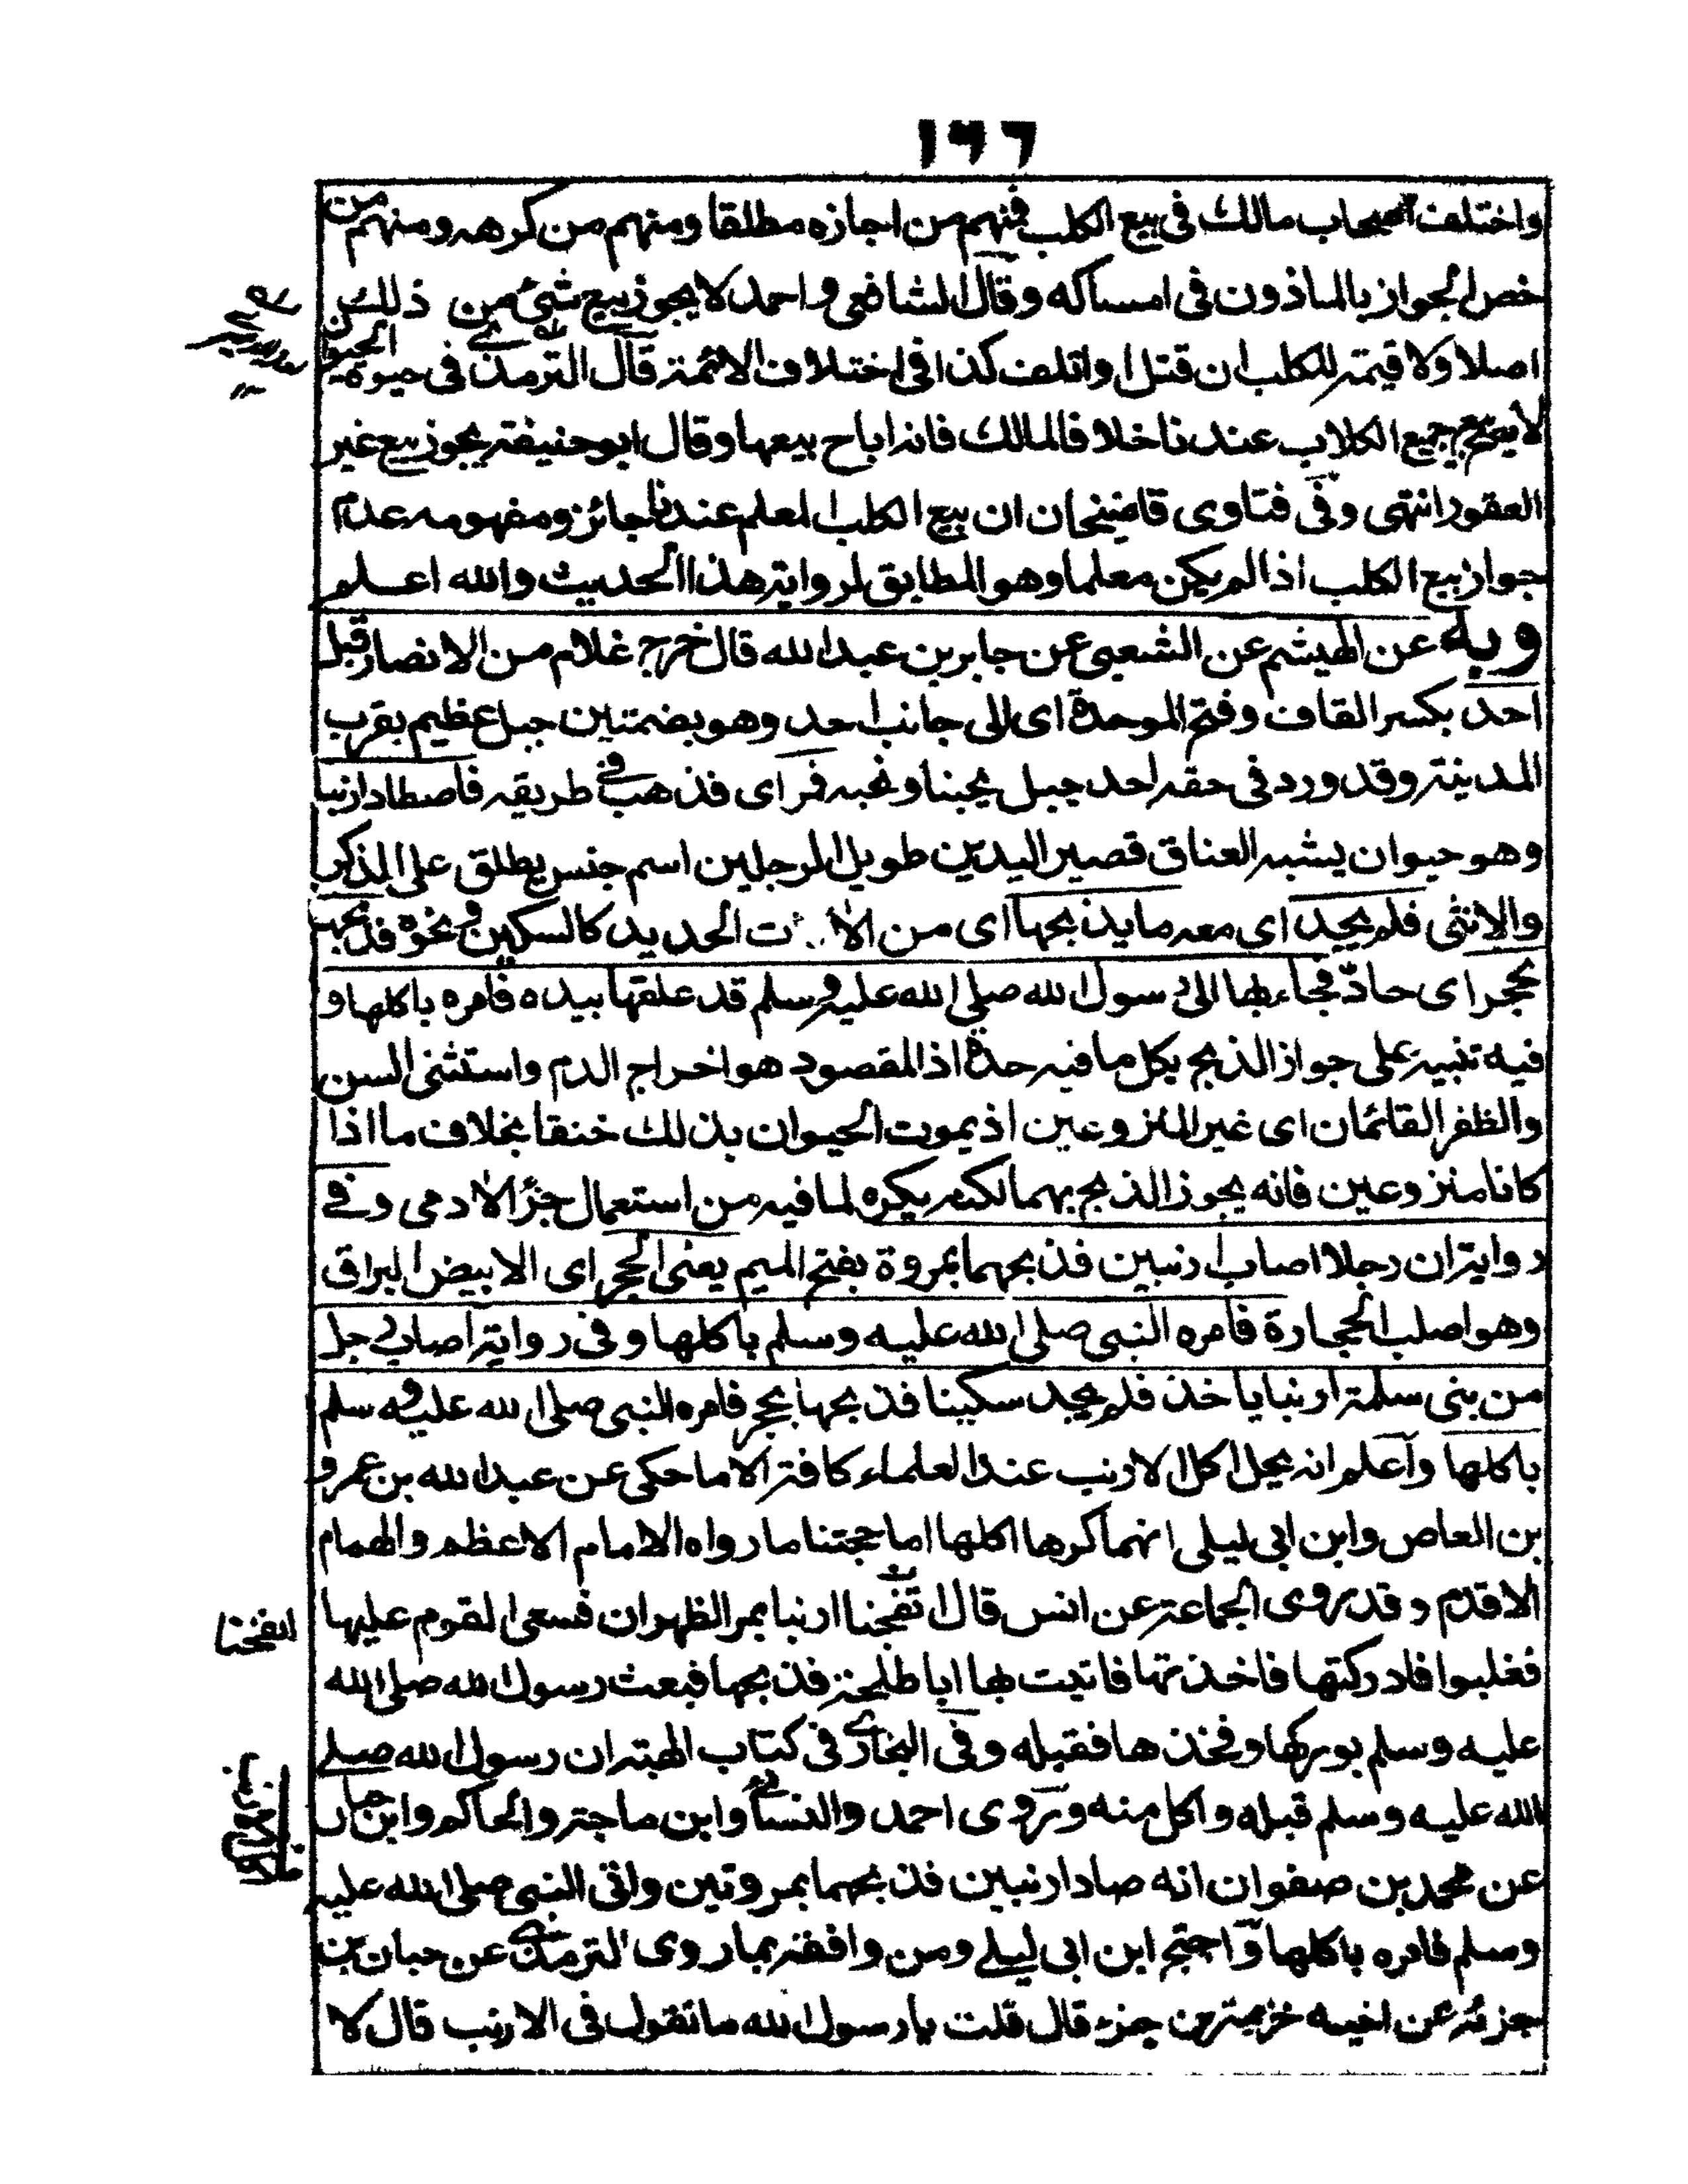 ١٦٦
واختلف اصحاب مالك فى بيع الكلب فمنهم من اجازه مطلقا ومنهم من كرهه ومنهم من
خص الجواز بالماذون فى امساكه وقال الشافعى واحمد لا يجوز بيع شئ من ذلك
اصلا ولا قيمة للكلب ان قتل او اتلف كذا فى اختلاف الائمة قال الترمذى فى حيوة الحيوان
لا يصح بيع جميع الكلاب عندنا خلافا لمالك فانه اباح بيعها وقال ابو حنيفة يجوز بيع غير
العقور انتهى وفى فتاوى قاضيخان ان بيع الكلب المعلم عندنا جائز ومفهومه عدم
جواز بيع الكلب اذا لم يكن معلما وهو المطابق لرواية هذا الحديث والله اعلم
وبه عن الهيثم عن الشعبى عن جابر بن عبد الله قال خرج غلام من الانصار قبل
احد بكسر القاف وفتح الموحدة اى الى جانب احد وهو بضمتين جبل عظيم بقرب
المدينة وقد ورد فى حقه احد جبل يحبنا ونحبه فمر اى فذهب فى طريقه فاصطاد ارنبا
وهو حيوان يشبه العناق قصير اليدين طويل الرجلين اسم جنس يطلق على المذكر
والانثى فلم يجد اى معه ما يذبحها اى من الآت الحديد كالسكين ونحوه فذبحها
بحجر اى حاد فجاء بها الى رسول الله صلى الله عليه وسلم قد علقها بيده فامره باكلها و
فيه تنبيه على جواز الذبح بكل ما فيه حدة اذ المقصود هو اخراج الدم واستثنى السن
والظفر القائمان اى غير المنزوعين اذ يموت الحيوان بذلك خنقا بخلاف ما اذا
كانا منزوعين فانه يجوز الذبح بهما لكنه يكره لما فيه من استعمال جزء الآدمى وفى
رواية ان رجلا اصاب ارنبين فذبحهما بمروة بفتح الميم يعنى الحجر اى الابيض البراق
وهو اصلب الحجارة فامره النبى صلى الله عليه وسلم باكلها وفى رواية اصاب رجل
من بنى سلمة ارنبا باحد فلم يجد سكينا فذبحها بحجر فامره النبى صلى الله عليه وسلم
باكلها واعلم انه يحل اكل الارنب عند العلماء كافة الا ما حكى عن عبد الله بن عمرو
بن العاص وابن ابى ليلى انهما كرها اكلها اما حجتنا ما رواه الامام الاعظم والهمام
الاقدم وقد روى الجماعة عن انس قال انفجنا ارنبا بمر الظهران فسعى القوم عليها
انفجنا
فغلبوا فادركتها فاخذتها فاتيت بها ابا طلحة فذبحها فبعث رسول الله صلى الله
عليه وسلم بوركها وفخذها فقبله وفى البخارى فى كتاب الهبة ان رسول الله صلى
الله عليه وسلم قبله واكل منه وروى احمد والنسائى وابن ماجة والحاكم وابن حبان
عن محمد بن صفوان انه صاد ارنبين فذبحهما بمروتين واتى النبى صلى الله عليه
وسلم فامره باكلها واحتج ابن ابى ليلى ومن وافقه بما روى الترمذى عن حبان بن
جزء عن اخيه خزيمة بن جزء قال قلت يا رسول الله ما تقول فى الارنب قال لا